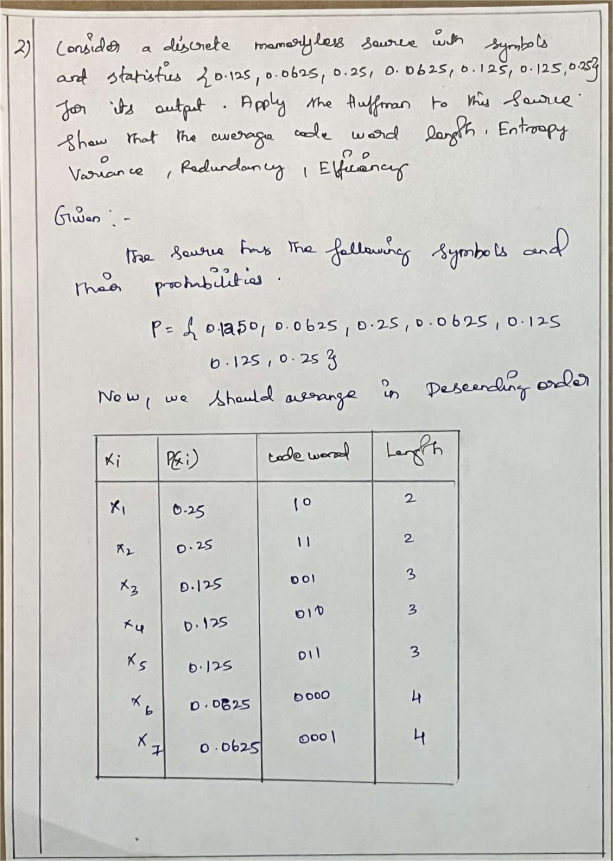 2) Consider a discrete memoryless source with symbols
and statistics {0.125, 0.0625, 0.25, 0.0625, 0.125, 0.125, 0.25}
for its output. Apply the Huffman to this source.
Show that the average code word length, Entropy
Variance, Redundancy, Efficiency
Given :-
The source has the following symbols and
their probabilities.
P = { 0.1250, 0.0625, 0.25, 0.0625, 0.125
0.125, 0.25 }
Now, we should arrange in Descending order
xi P(xi) code word Length
x1 0.25 10 2
x2 0.25 11 2
x3 0.125 001 3
x4 0.125 010 3
x5 0.125 011 3
x6 0.0625 0000 4
x7 0.0625 0001 4